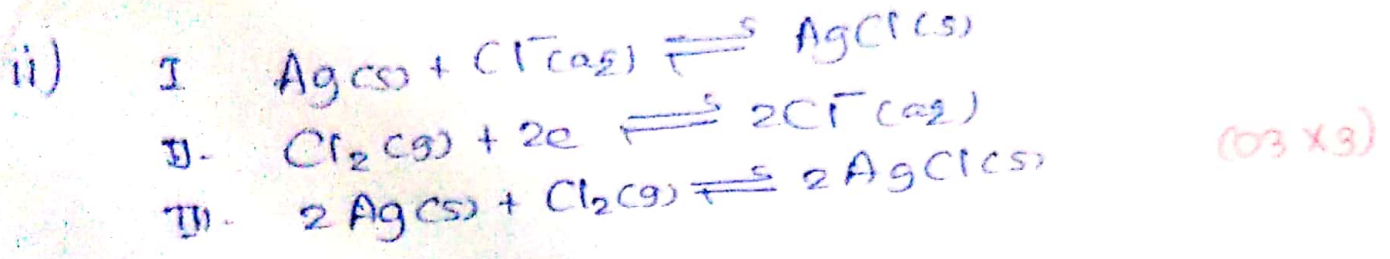 ii) I Ag(s) + Cl⁻(aq) ⇌ AgCl(s)
II. Cl₂(g) + 2e ⇌ 2Cl⁻(aq)
III. 2Ag(s) + Cl₂(g) ⇌ 2AgCl(s)
(03 x 3)